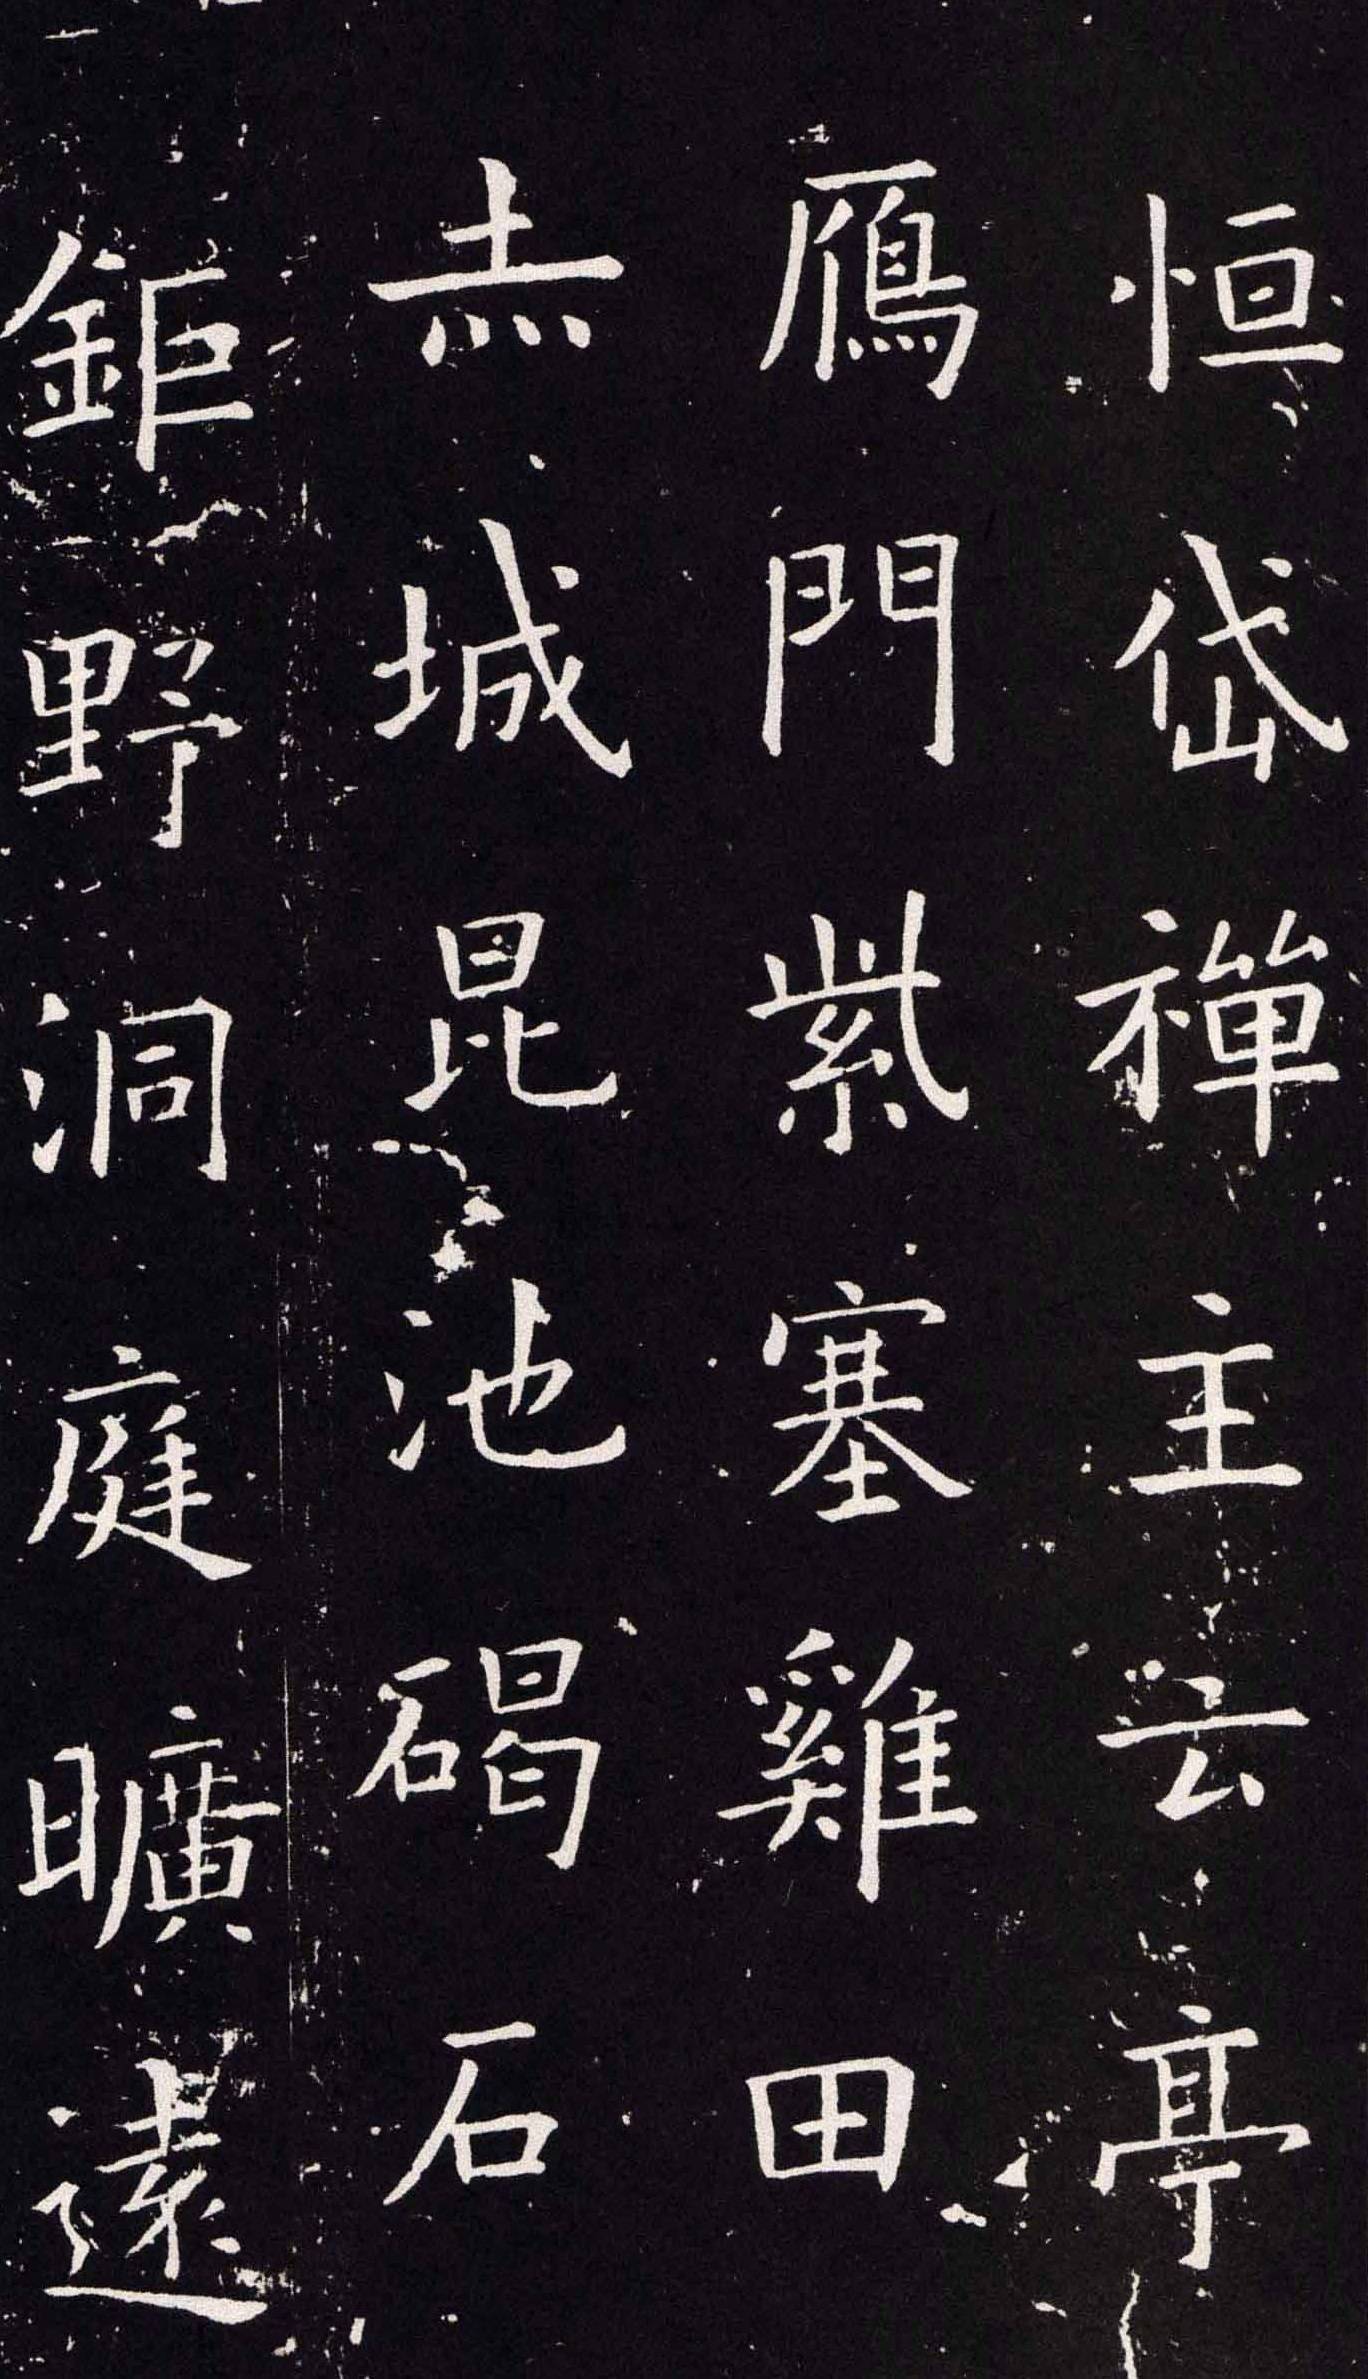 恒岱禪主云亭
鴈門紫塞雞田
赤城昆池碣石
鉅野洞庭曠遠